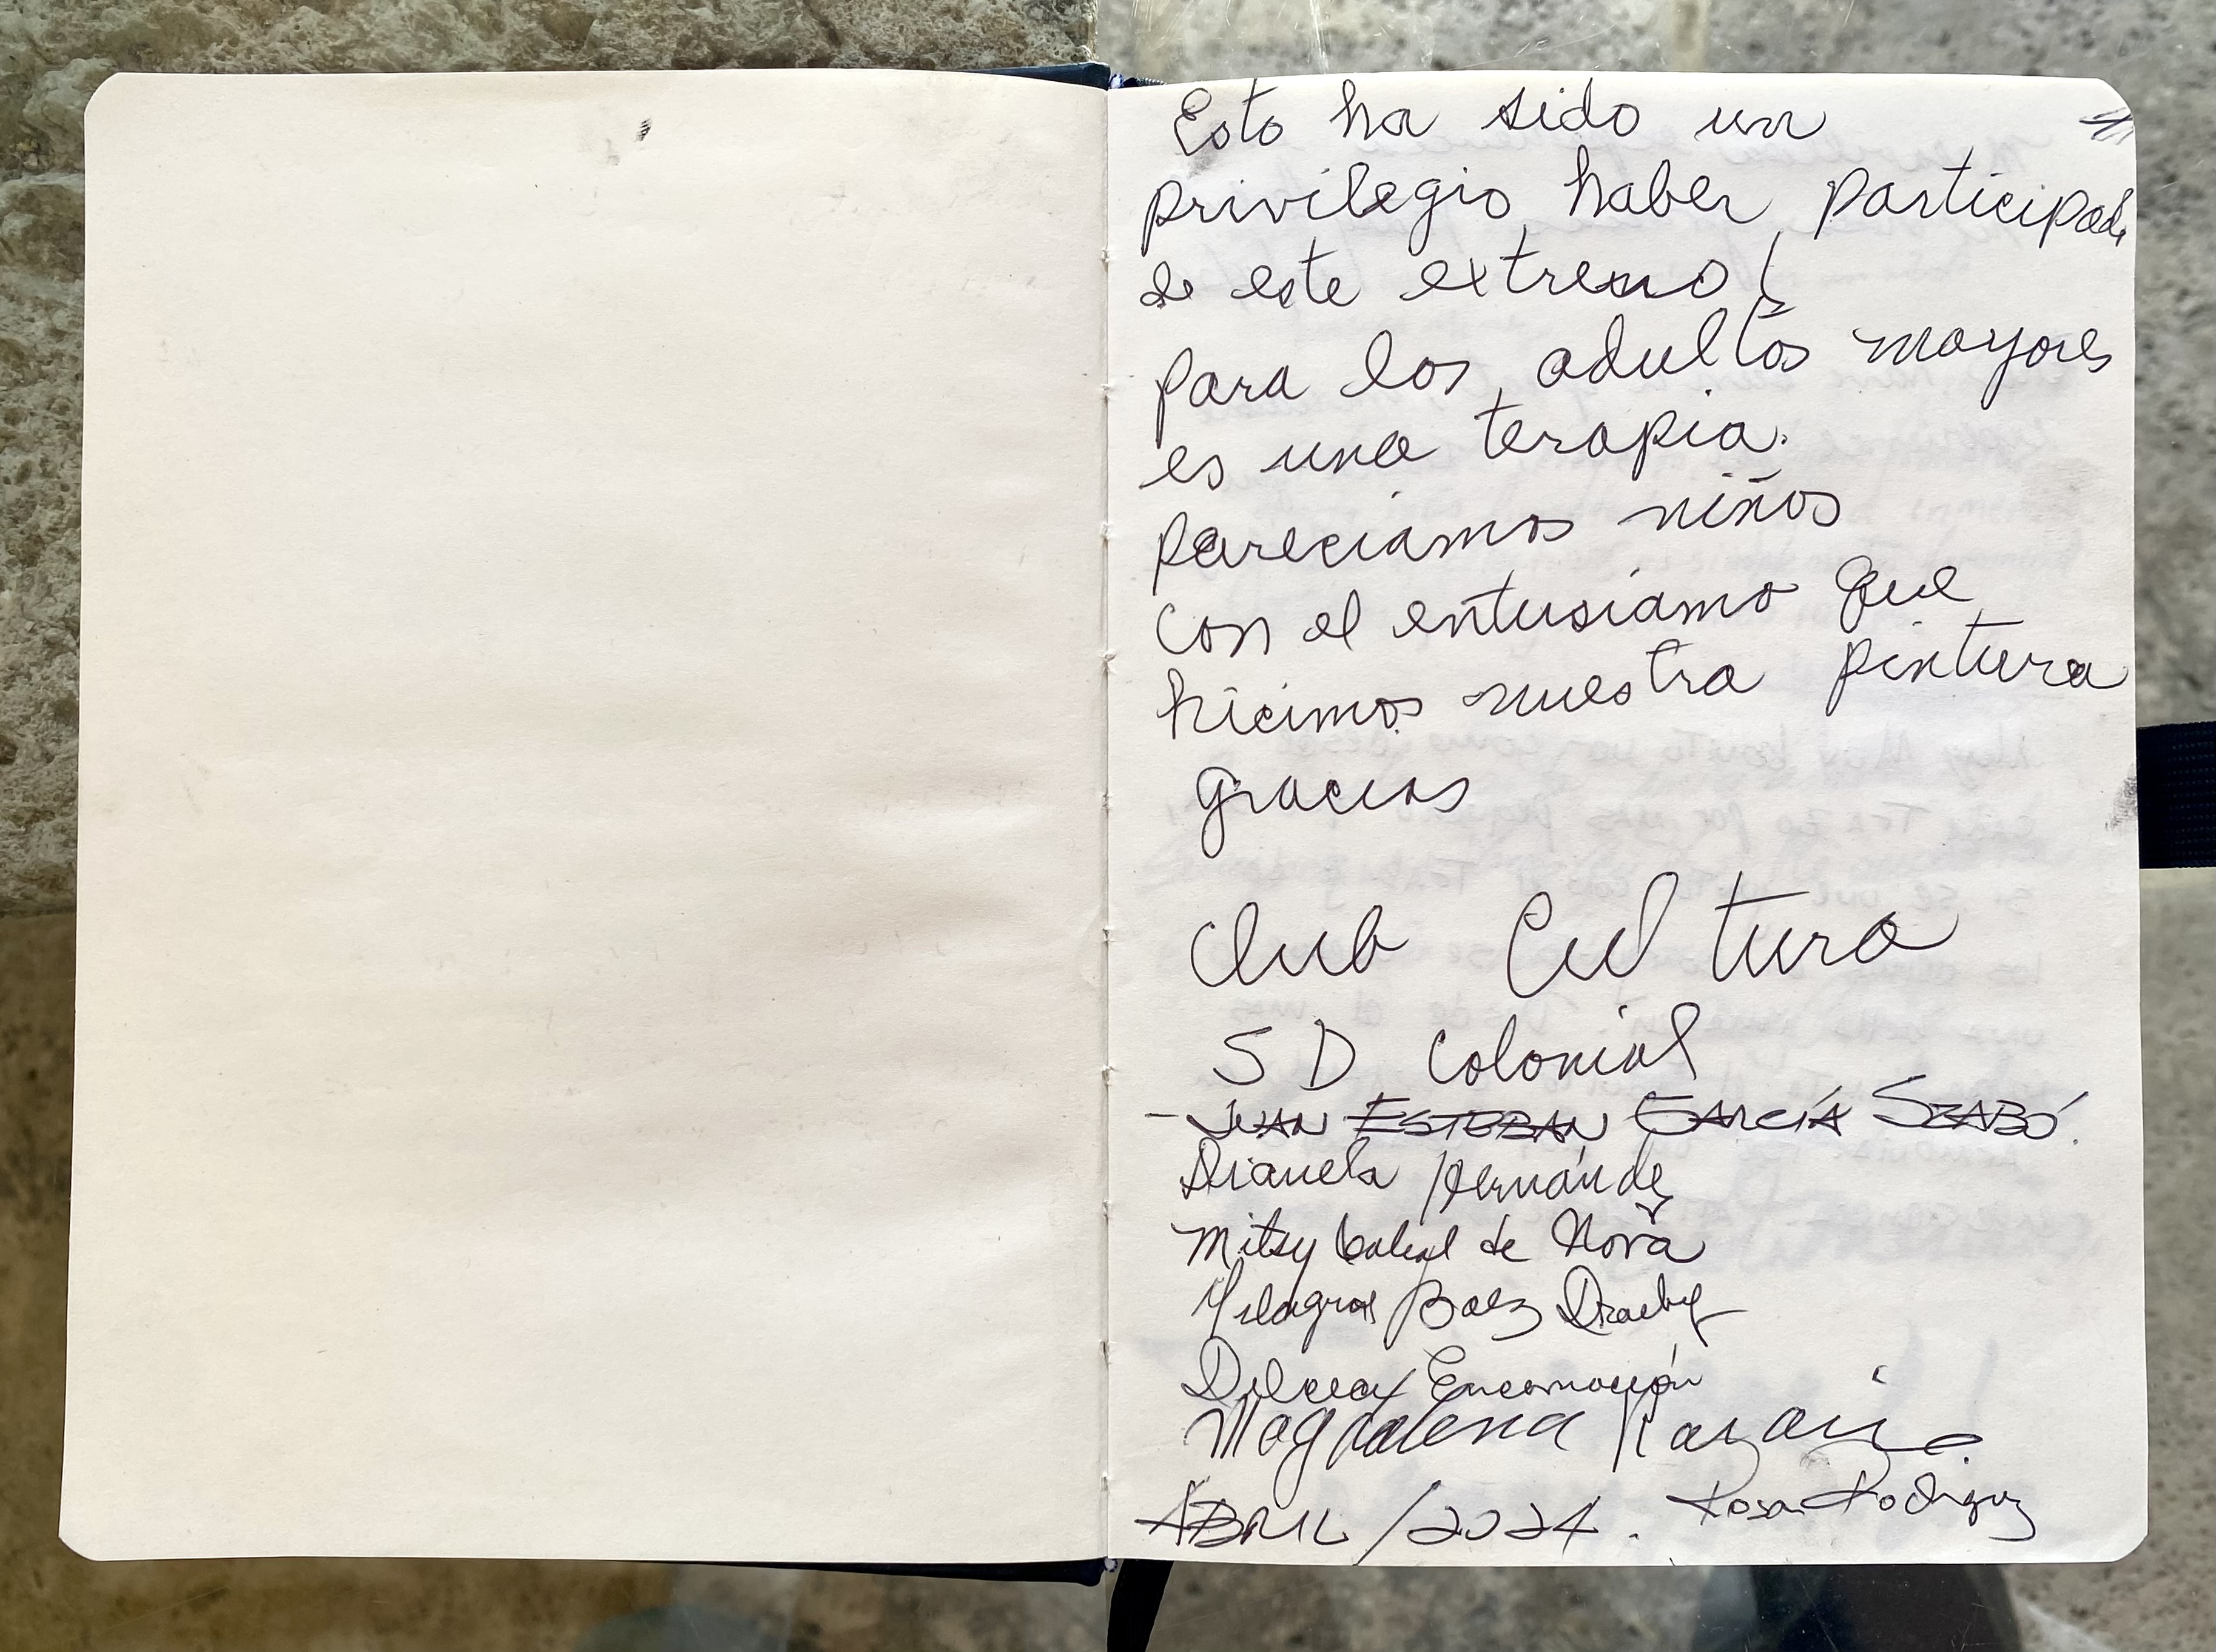 Esto ha sido un
privilegio haber participado
de este extremo!
para los adultos mayores
es una terapia.
pareciamos niños
con el entusiamo que
hicimos nuestra pintura
gracias
Club Cultura
S D Colonial
- JUAN ESTEBAN GARCÍA SZABÓ.
Dianela Hernández
Mitsy Cabral de Mora
Milagros Baez
Dulcea Encarnación
Magdalena
ABRIL / 2024. Rosa Rodriguez